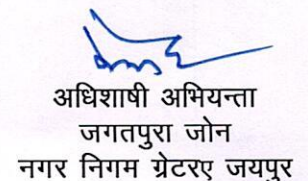 अधिशाषी अभियन्ता
जगतपुरा जोन
नगर निगम ग्रेटरए जयपुर